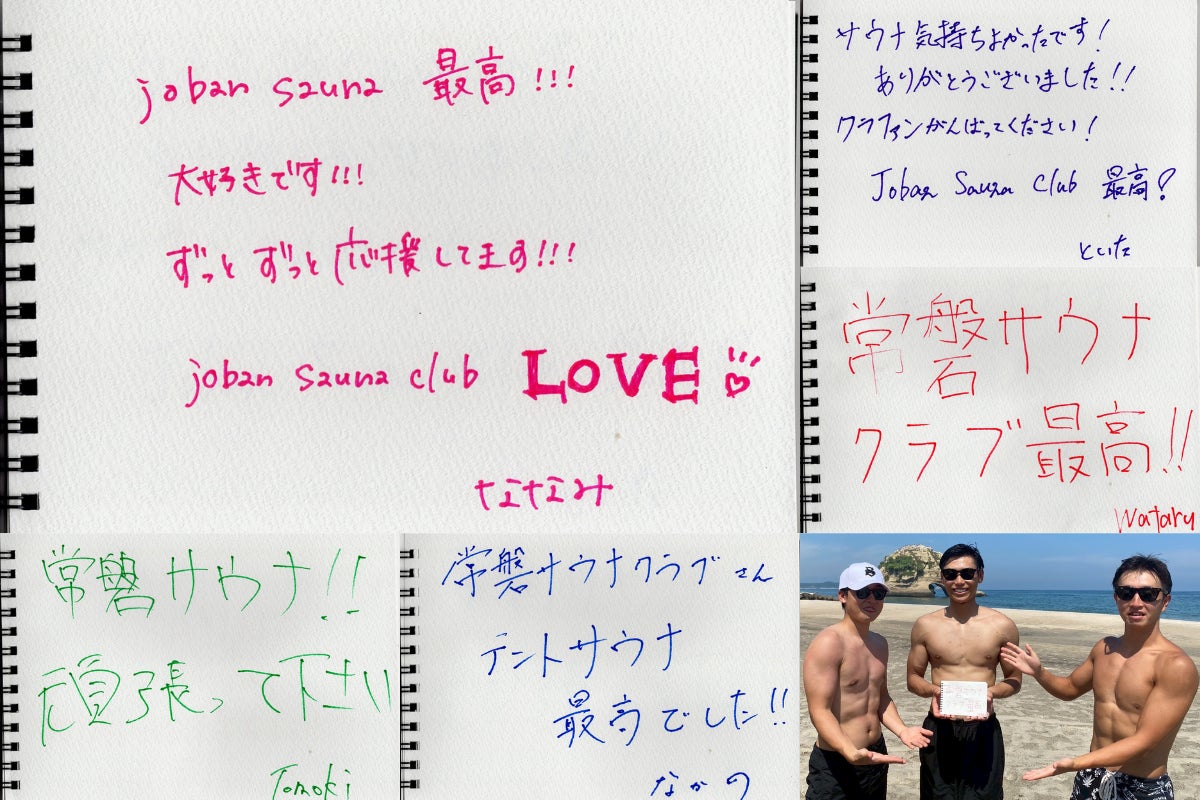 joban sauna 最高!!!
大好きです!!!
ずっと ずっと 応援してます!!!
joban sauna club LOVE
サウナ気持ちよかったです!
ありがとうございました!!
クラファンがんばってください!
Joban Sauna Club 最高!
といた
常磐サウナ
クラブ最高!!
Wataru
常磐サウナ!!
頑張って下さい
Tomoki
常磐サウナクラブさん
テントサウナ
最高でした!!
なかの